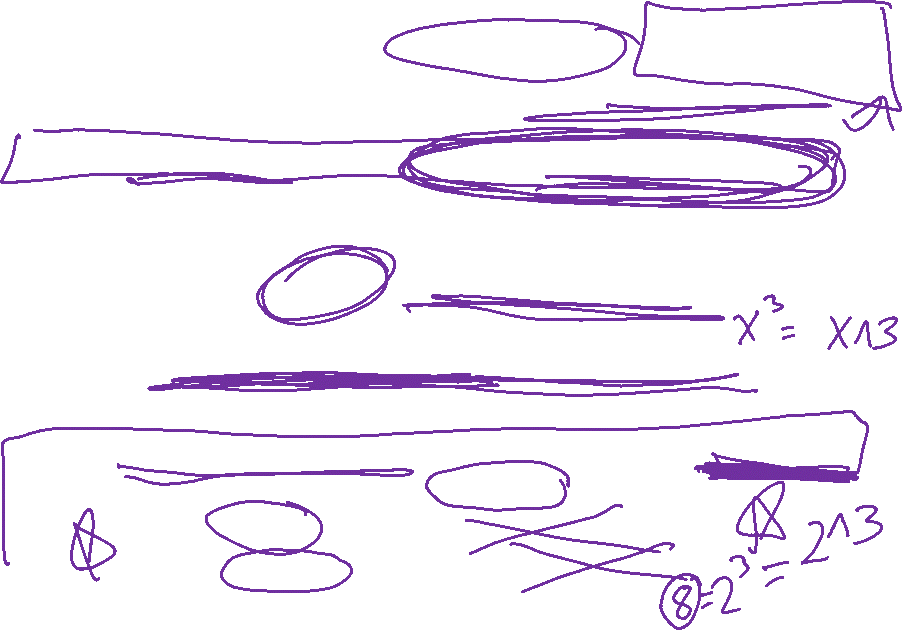 x³ = x^3
8 = 2³ = 2^3